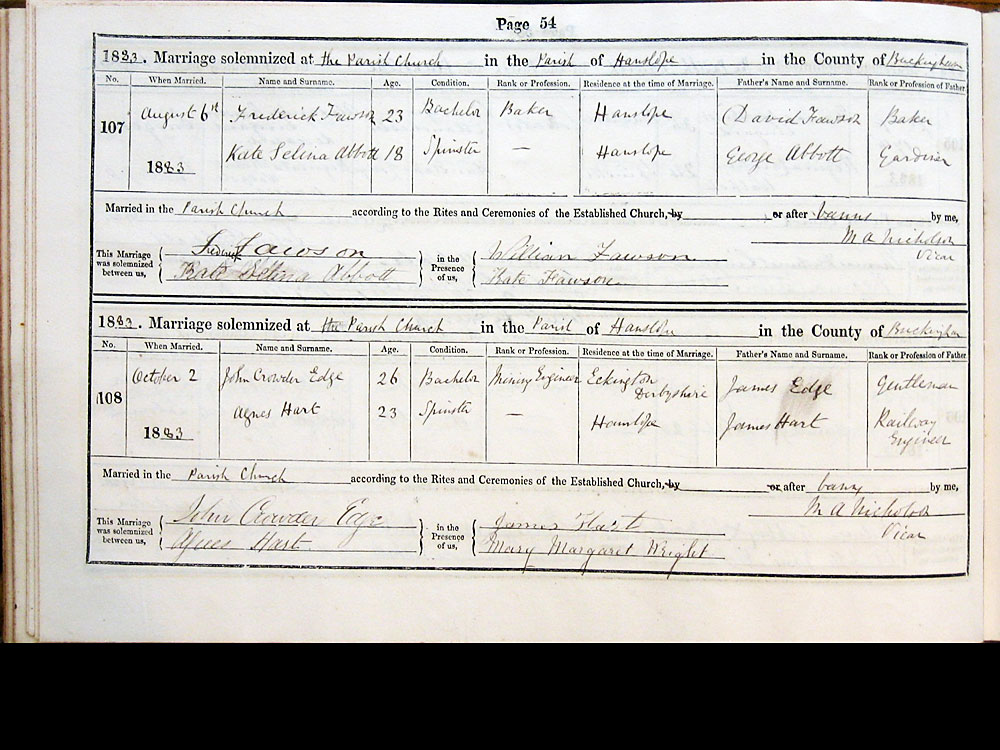 Page 54
1883. Marriage solemnized at the Parish Church in the Parish of Hanslope in the County of Buckingham
No. When Married. Name and Surname. Age. Condition. Rank or Profession. Residence at the time of Marriage. Father's Name and Surname. Rank or Profession of Father.
107 August 6th 1883 Frederick Fawson 23 Bachelor Baker Hanslope David Fawson Baker
Kate Selina Abbott 18 Spinster — Hanslope George Abbott Gardiner
Married in the Parish Church according to the Rites and Ceremonies of the Established Church, by or after banns by me,
M A Nicholson
Vicar
This Marriage was solemnized between us, Frederick Fawson
Kate Selina Abbott
in the Presence of us, William Fawson
Kate Fawson
1883. Marriage solemnized at the Parish Church in the Parish of Hanslope in the County of Buckingham
No. When Married. Name and Surname. Age. Condition. Rank or Profession. Residence at the time of Marriage. Father's Name and Surname. Rank or Profession of Father
108 October 2 1883 John Crowder Edge 26 Bachelor Mining Engineer Eckington Derbyshire James Edge Gentleman
Agnes Hart 23 Spinster — Hanslope James Hart Railway Engineer
Married in the Parish Church according to the Rites and Ceremonies of the Established Church, by or after banns by me,
M A Nicholson
Vicar
This Marriage was solemnized between us, John Crowder Edge
Agnes Hart
in the Presence of us, James Hart
Mary Margaret Wright